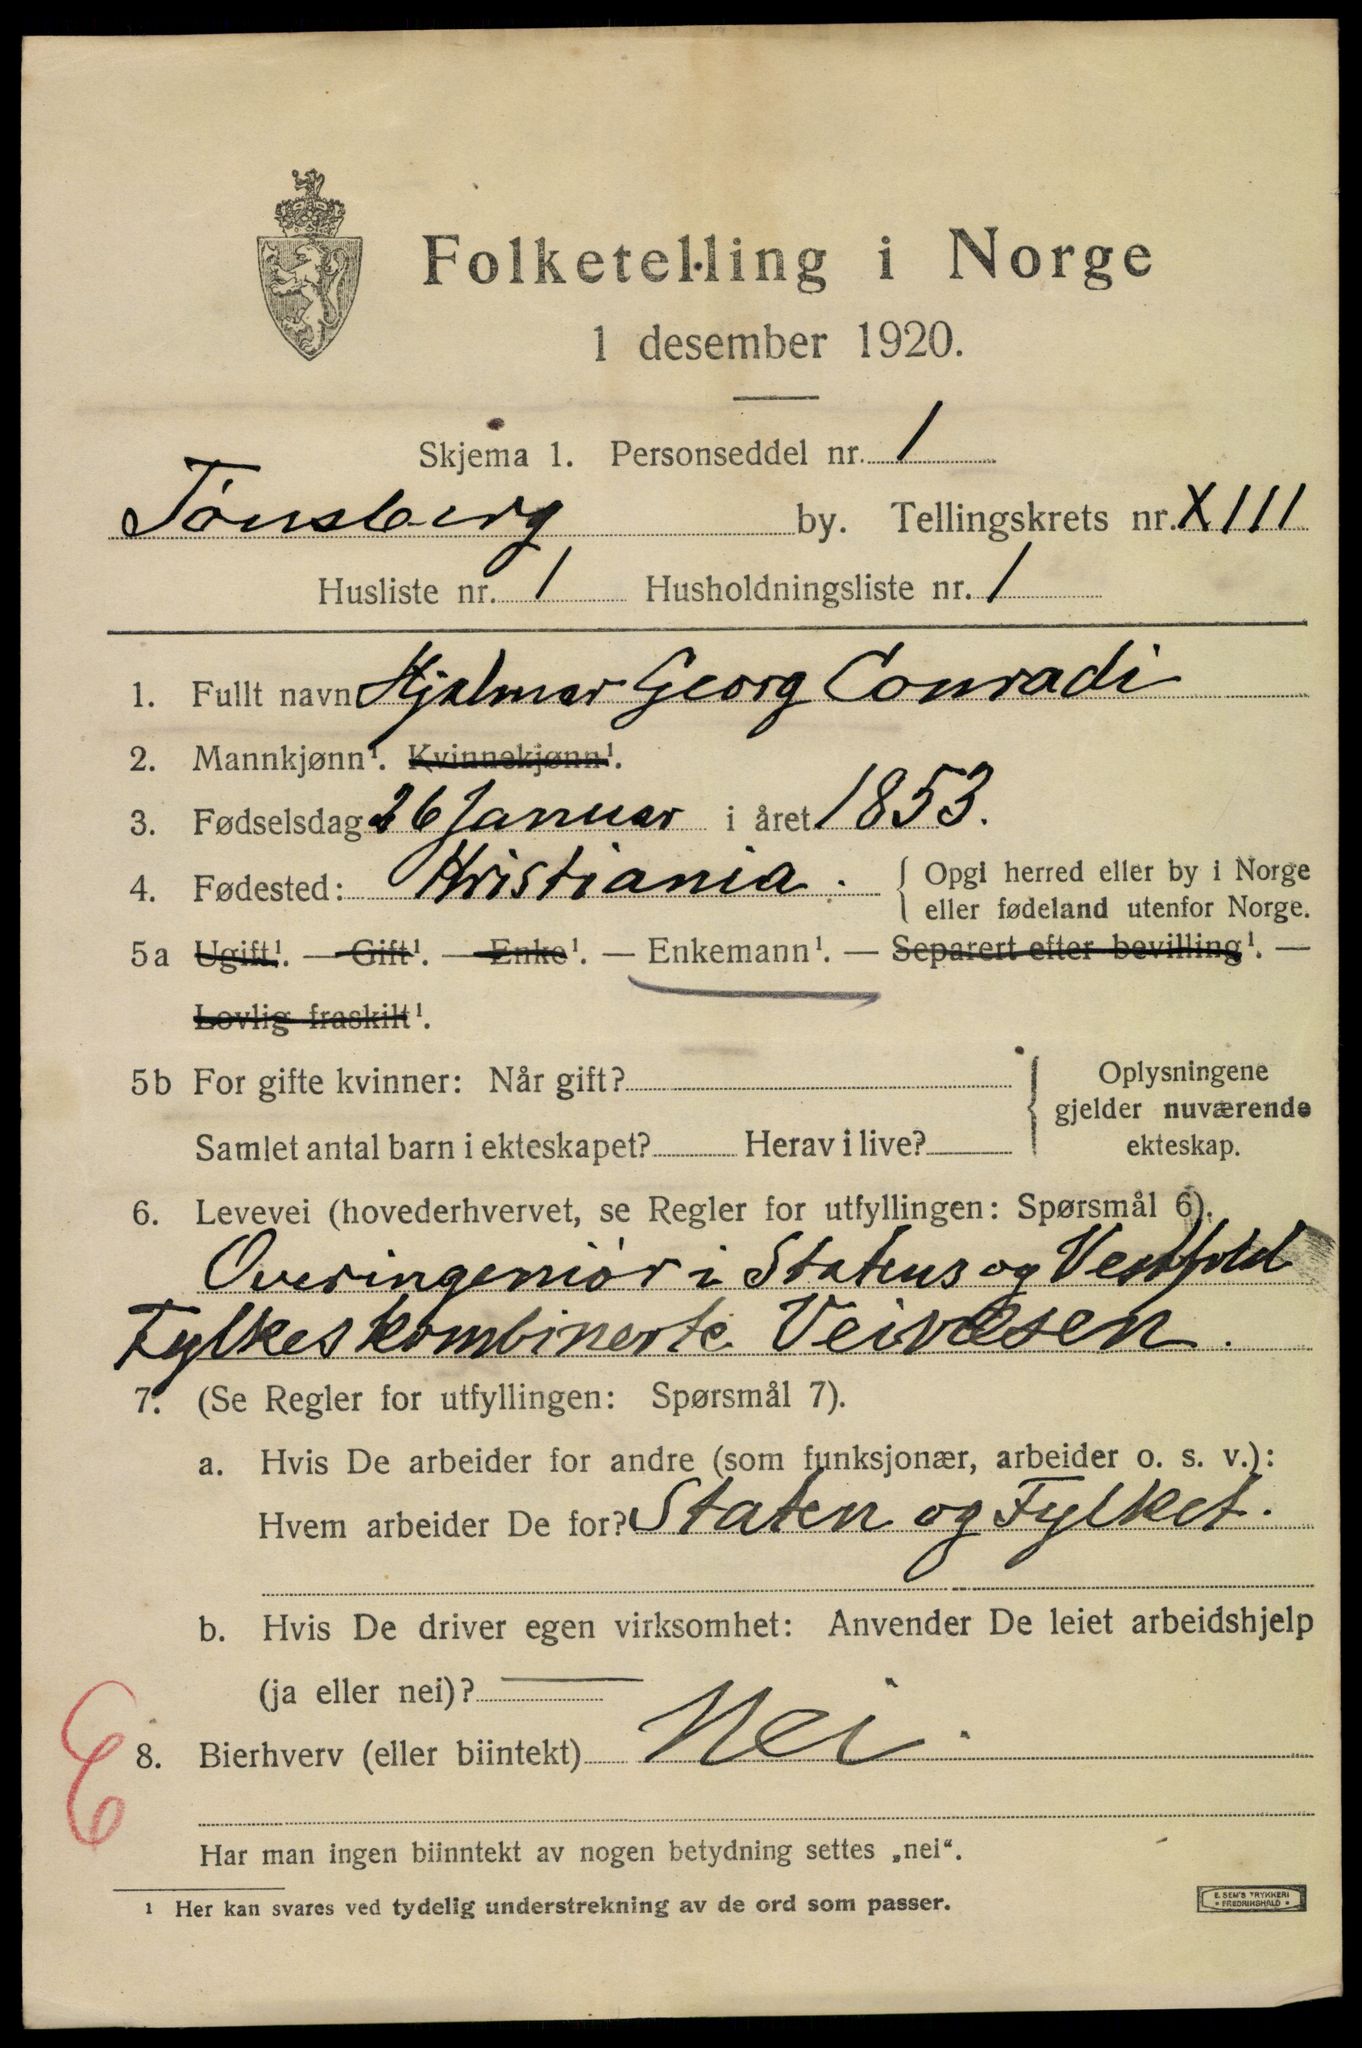 Folketelling i Norge
1 desember 1920.
Skjema 1. Personseddel nr. 1
Tønsberg by. Tellingskrets nr. XIII
Husliste nr. 1 Husholdningsliste nr. 1
1. Fullt navn Hjalmar Georg Conradi
2. Mannkjønn¹. Kvinnekjønn¹.
3. Fødselsdag 26 Januar i året 1853.
4. Fødested: Kristiania. { Opgi herred eller by i Norge
eller fødeland utenfor Norge.
5a Ugift¹. — Gift¹. — Enke¹. — Enkemann¹. — Separert efter bevilling¹. —
Lovlig fraskilt¹.
5b For gifte kvinner: Når gift? { Oplysningene
gjelder nuværende
Samlet antal barn i ekteskapet? Herav i live? ekteskap.
6. Levevei (hovederhvervet, se Regler for utfyllingen: Spørsmål 6).
Overingeniør i Statens og Vestfold
Fylkes kombinerte Veivæsen.
7. (Se Regler for utfyllingen: Spørsmål 7).
a. Hvis De arbeider for andre (som funksjonær, arbeider o. s. v.):
Hvem arbeider De for? Staten og Fylket.
b. Hvis De driver egen virksomhet: Anvender De leiet arbeidshjelp
(ja eller nei)? —
E
8. Bierhverv (eller biintekt) Nei.
Har man ingen biinntekt av nogen betydning settes „nei“.
¹ Her kan svares ved tydelig understrekning av de ord som passer.
E. SEM'S TRYKKERI
• FREDRIKSHALD •